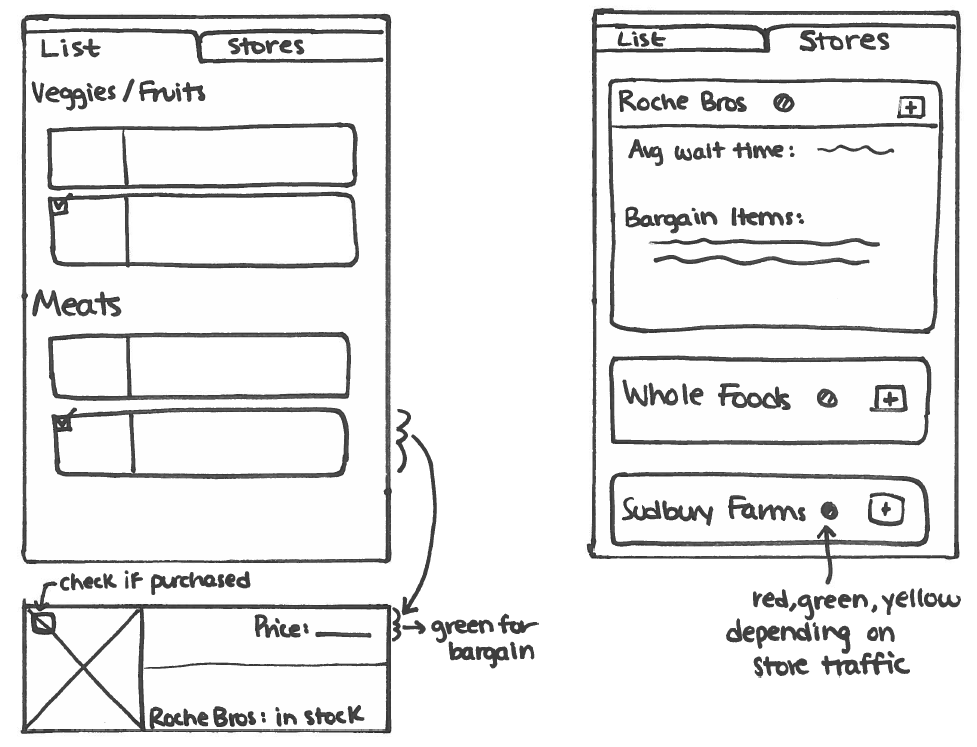 List
Stores
Veggies / Fruits
Meats
check if purchased
Price:
green for
bargain
Roche Bros: in stock
List
Stores
Roche Bros
+
Avg wait time:
Bargain Items:
Whole Foods
+
Sudbury Farms
+
red, green, yellow
depending on
store traffic